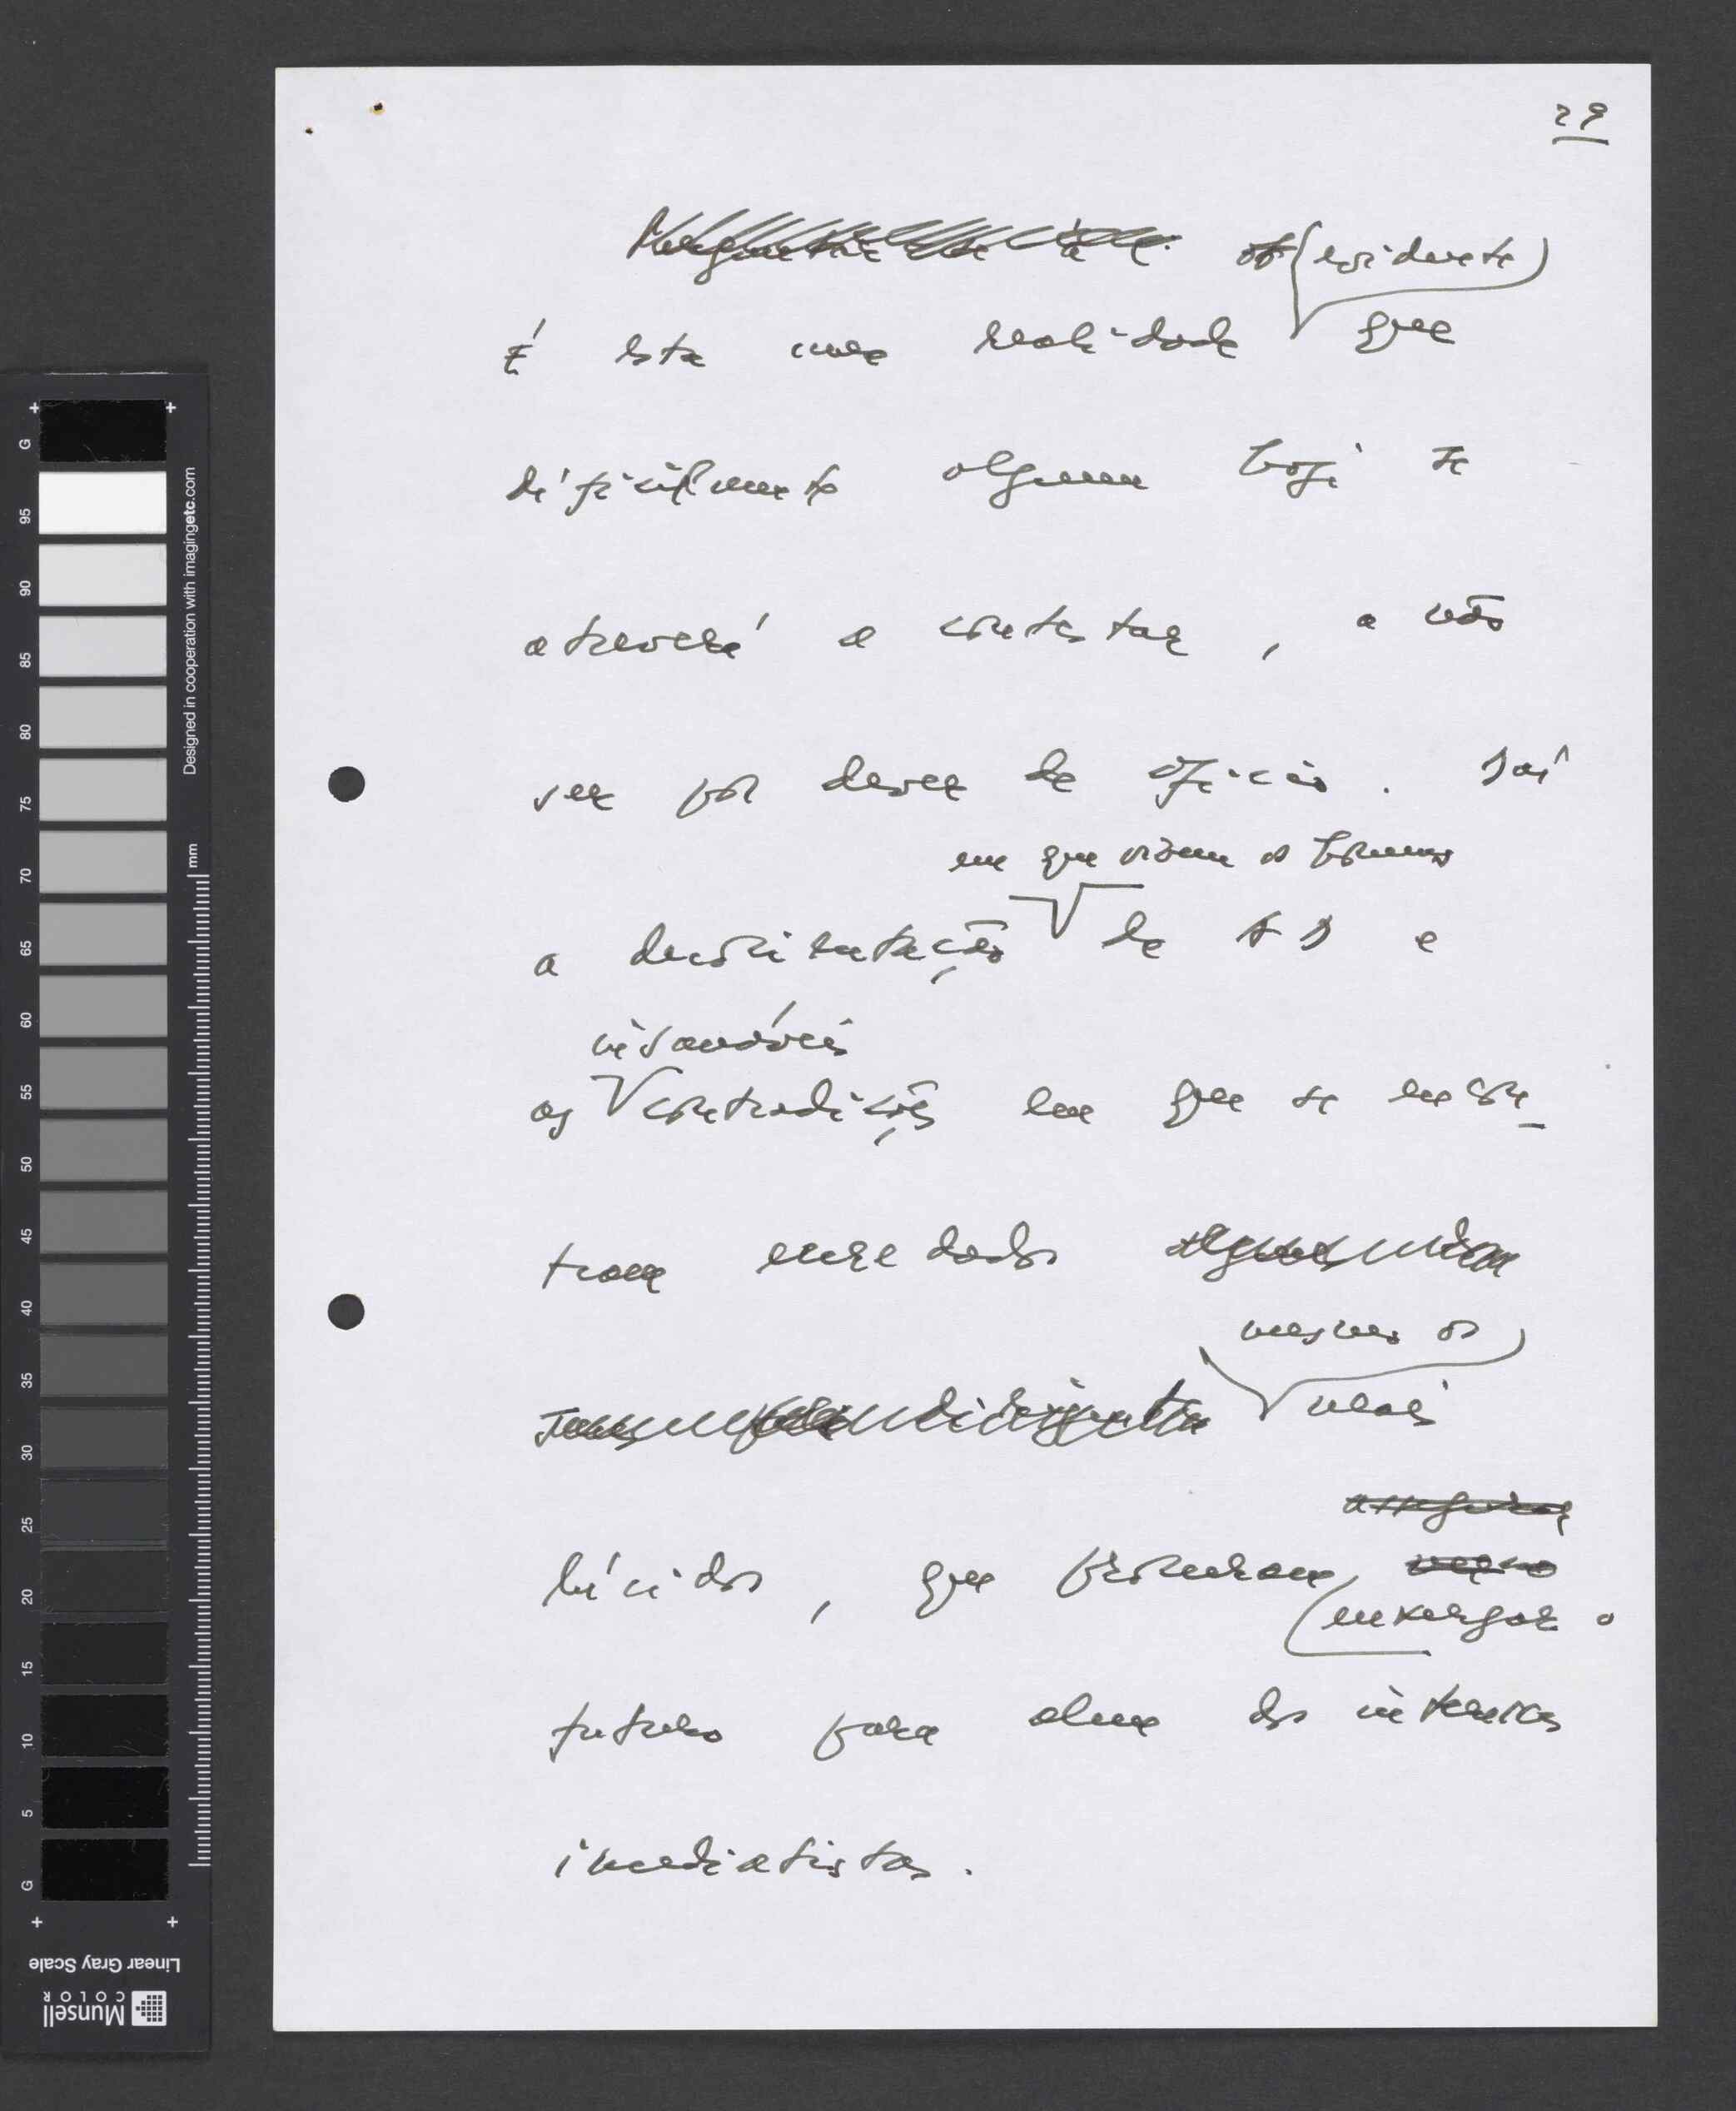 29
(evidente)
É esta uma realidade que
dificilmente alguem hoje se
atreverá a contestar, a não
ser por dever de oficio. Daí
em que vivem os homens
a desorientação de SD e
insanáveis
as contradições em que se encon-
tram enredados
mesmo os
mais
lúcidos, que procuram
enxergar o
futuro para alem dos interesses
imediatistas.
Designed in cooperation with imagingetc.com
mm
G 95 90 85 80 75 70 65 60 55 50 45 40 35 30 25 20 15 10 5 G
Linear Gray Scale
Munsell
COLOR